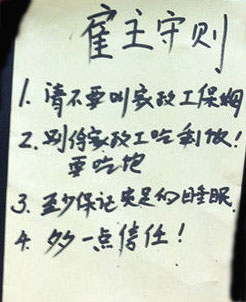 雇主守则
1. 请不要叫家政工保姆
2. 别给家政工吃剩饭!
要吃饱
3. 至少保证充足的睡眠.
4. 多一点信任!